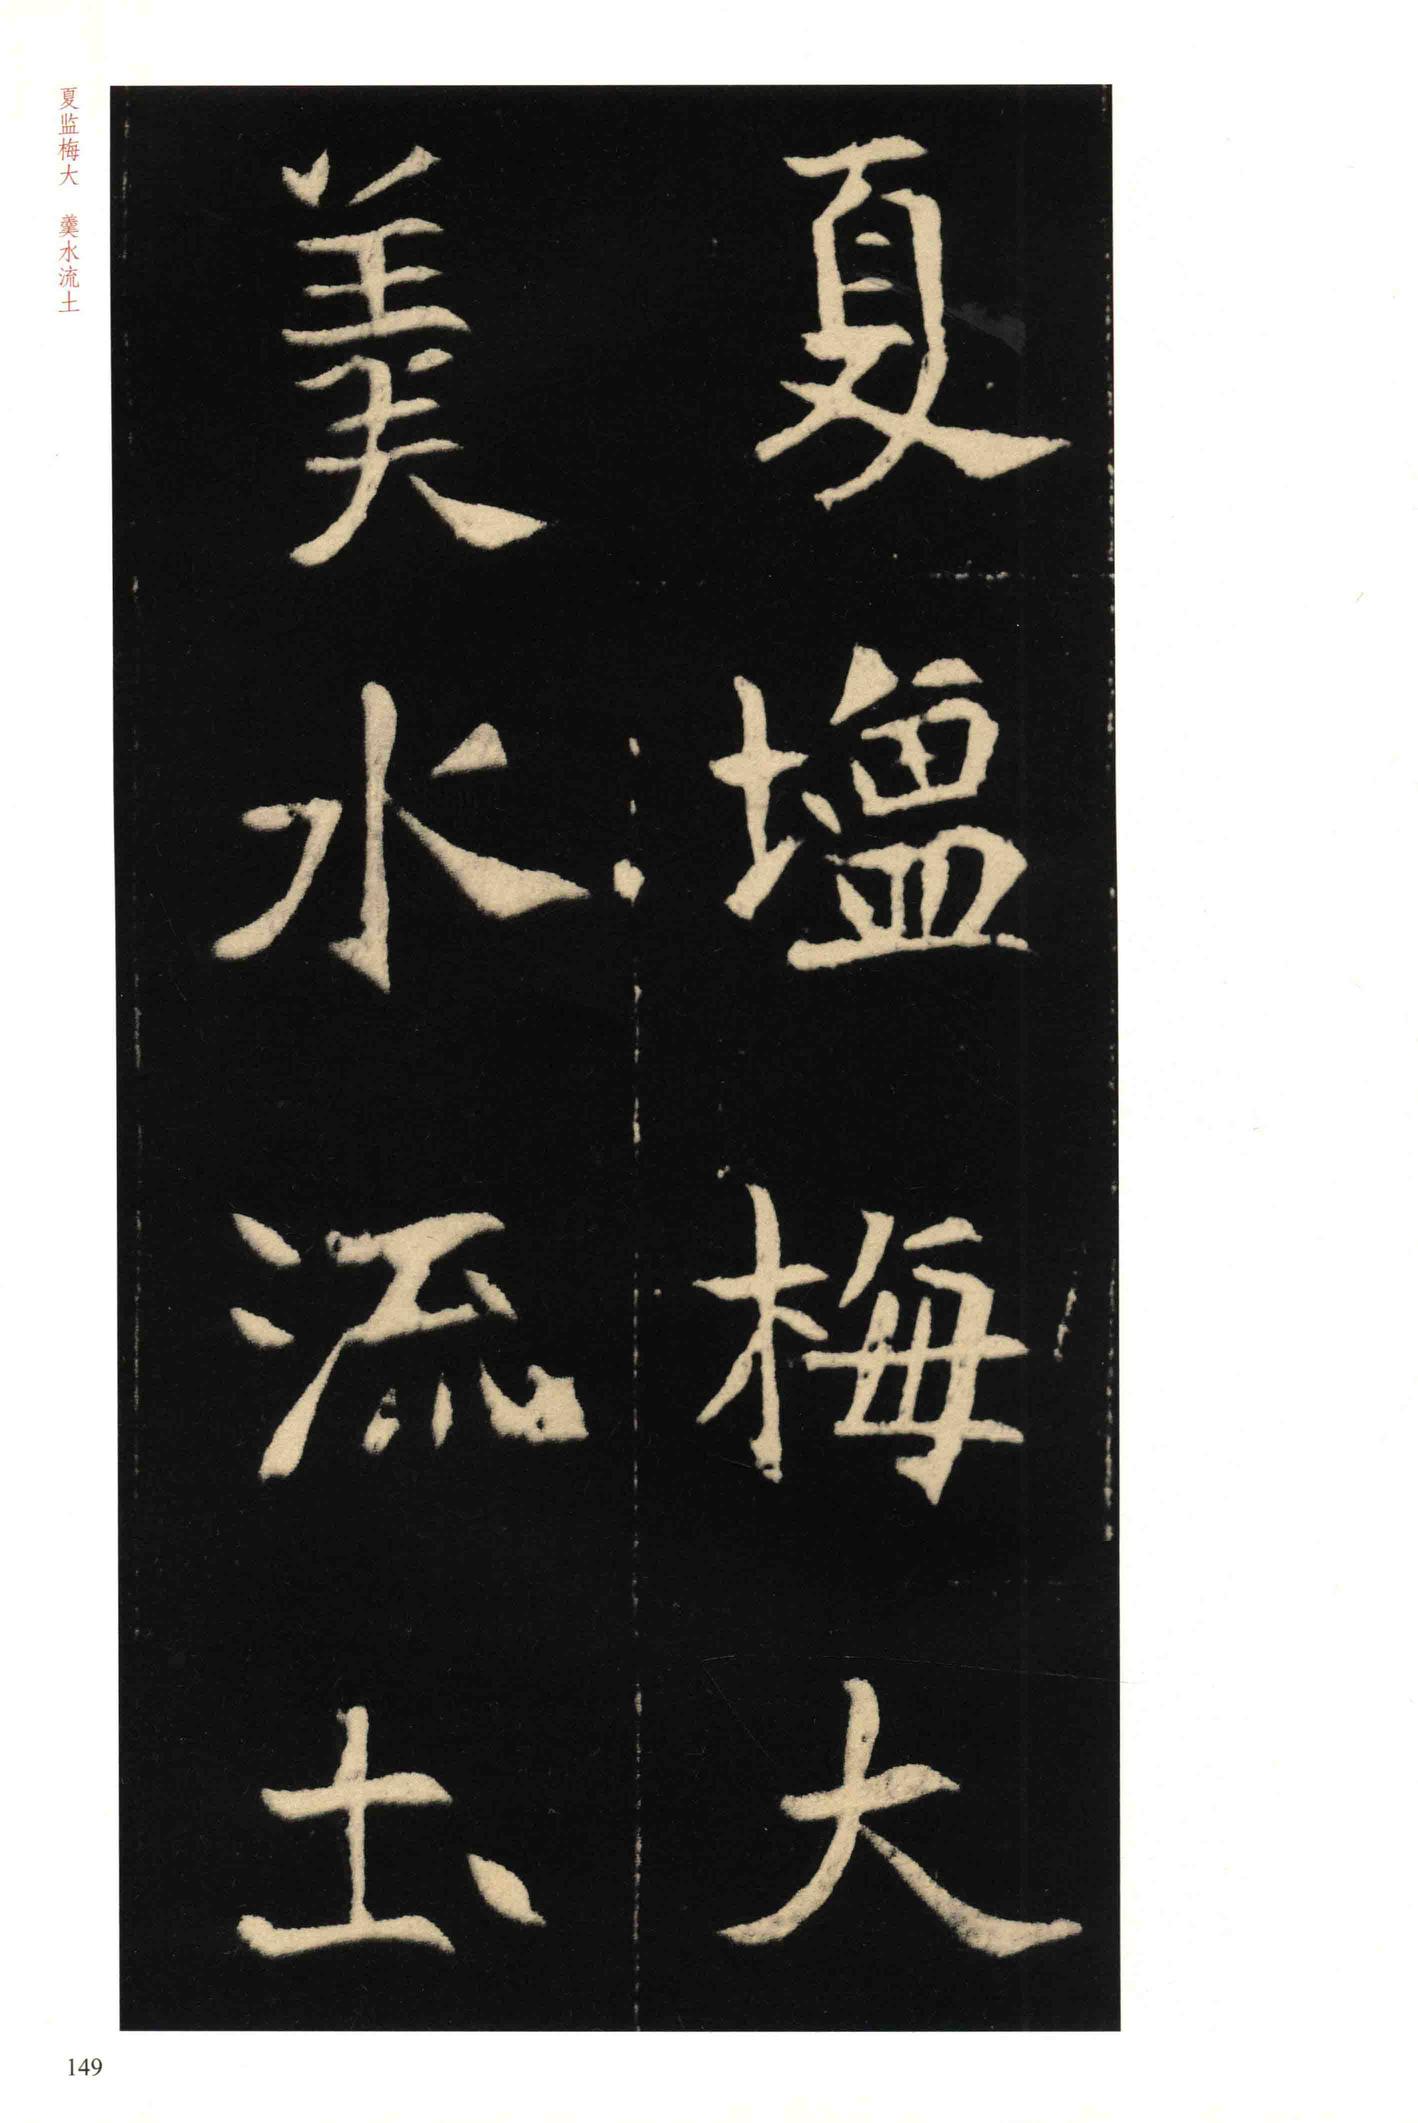 夏塩梅大
羹水流圡
夏监梅大　羹水流土
149